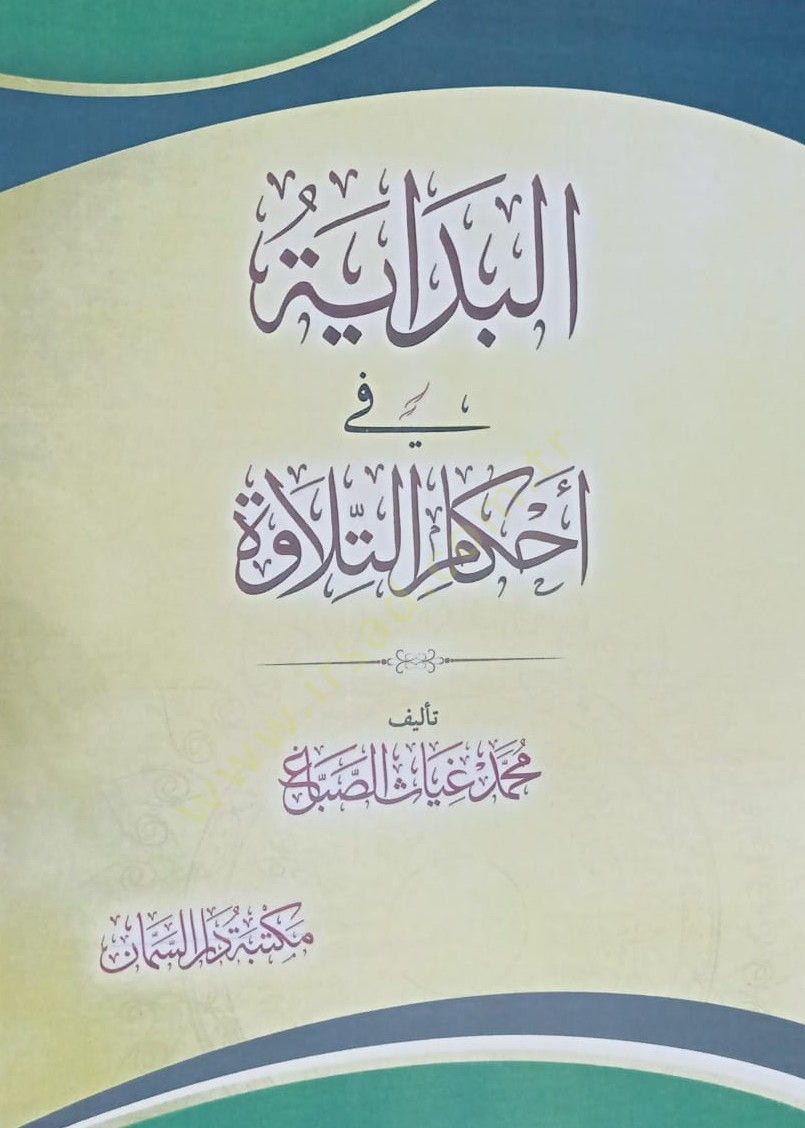 البَدَايَةُ
في
أَحْكَامِ التِّلَاوَة
تأليف
مُحَمَّد غِيَاث الصَّبَّاغ
مَكتَبَة دَار السَّمَّان
www.irsad.com.tr